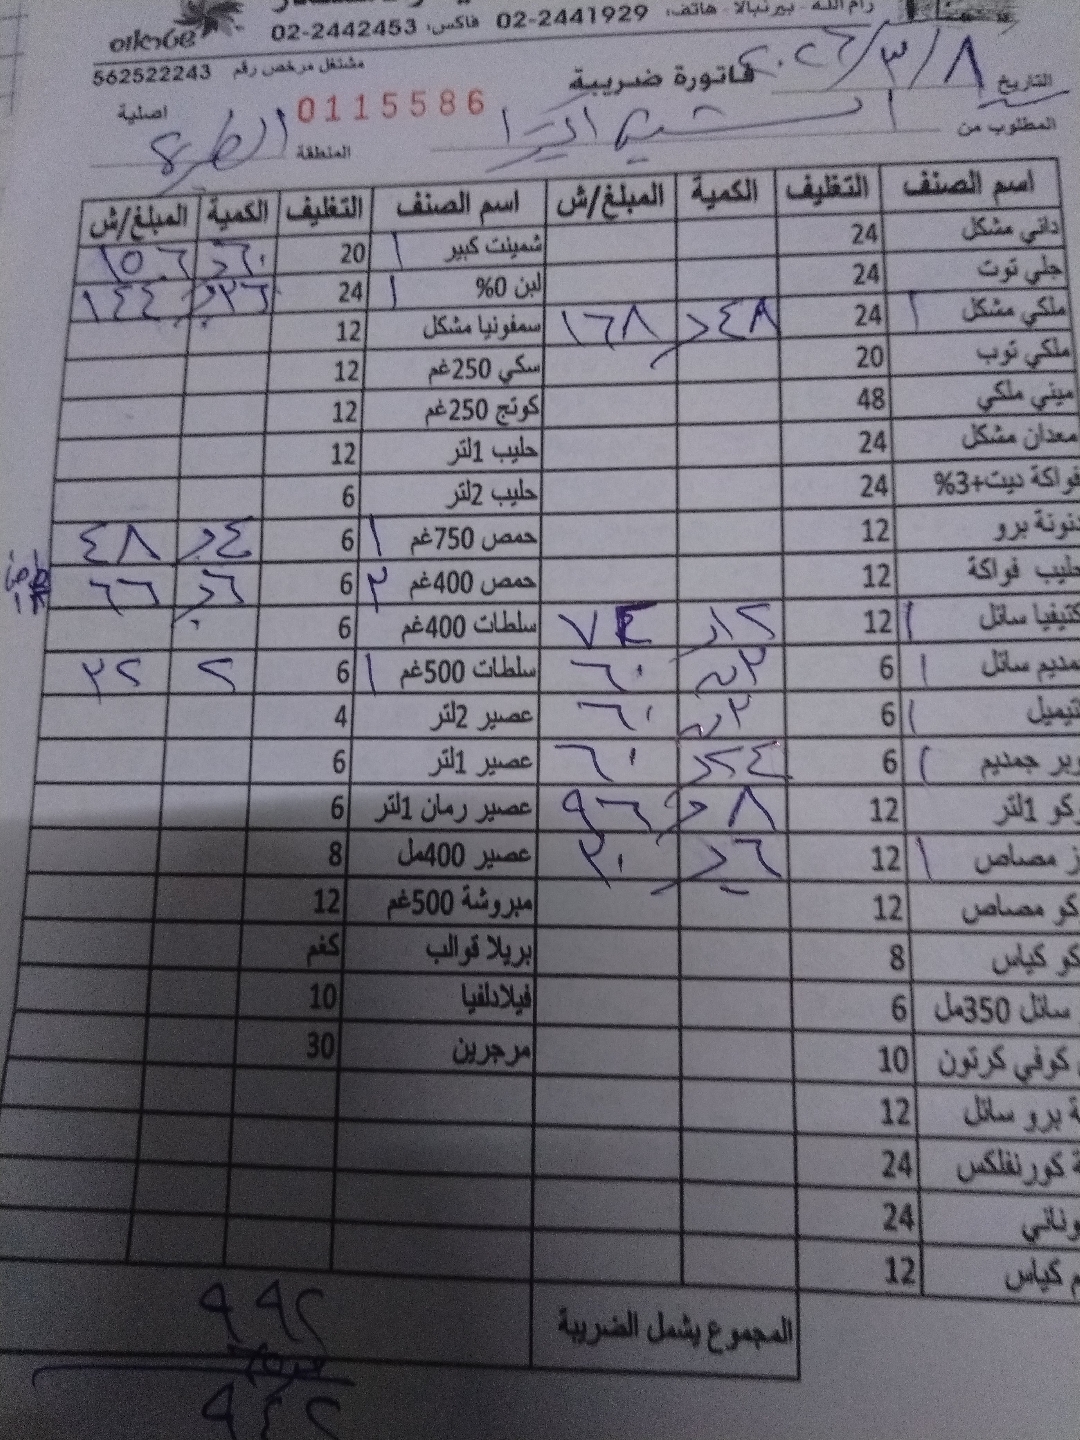 رام الله - بيرنبالا - هاتف: 02-2441929 فاكس: 02-2442453
مشتغل مرخص رقم 562522243
فاتورة ضريبية
التاريخ ٢٠٢٦/٣/٨
0115586 اصلية
المطلوب من
المنطقة
اسم الصنف التغليف الكمية المبلغ/ش اسم الصنف التغليف الكمية المبلغ/ش
داني مشكل 24 شمينت كبير ١ 20 ٦٠ ١٥٠٦
جلي توت 24 لبن 0% ١ 24 ٣٦ ١٤٤
ملكي مشكل ١ 24 ٤٨ ١٦٨ سمفونيا مشكل 12
ملكي توب 20 سكي 250غم 12
ميني ملكي 48 كوتج 250غم 12
معدان مشكل 24 حليب 1لتر 12
فواكة ديت+3% 24 حليب 2لتر 6
نونة برو 12 حمص 750غم ١ 6 ٤ ٤٨
حليب فواكة 12 حمص 400غم ٢ 6 ٦ ٦٦
كتيفيا سائل ١ 12 ١٢ ٧٤ سلطات 400غم 6
مديم سائل ١ 6 ٦٠ سلطات 500غم ١ 6 ٢ ٢٢
تيميل ١ 6 ٦٠ عصير 2لتر 4
وير جمديم ١ 6 ٢٤ ٦٠ عصير 1لتر 6
كو 1لتر 12 ٨ ٩٦ عصير رمان 1لتر 6
ز مصاص ١ 12 ٦ ٣٠ عصير 400مل 8
كو مصاص 12 مبروشة 500غم 12
كو كياس 8 بريلا قوالب كغم
سائل 350مل 6 فيلادلفيا 10
كوفي كرتون 10 مرجرين 30
ة برو سائل 12
ة كورنفلكس 24
وناني 24
م كياس 12
المجموع يشمل الضريبة ٩٩٢
٩٤٢